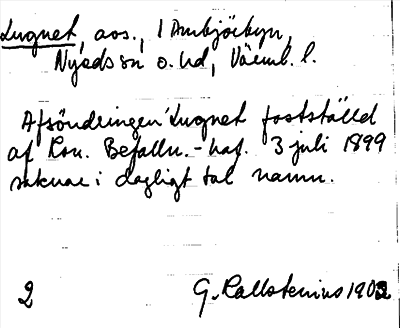 Lugnet, avs., i Ambjörbyn,
Nyeds sn o. hd, Värml. l.
Afsöndringen Lugnet fastställd
af Kon. Befalln.-haf. 3 juli 1899
saknar i dagligt tal namn.
2 G. Kallstenius 1902